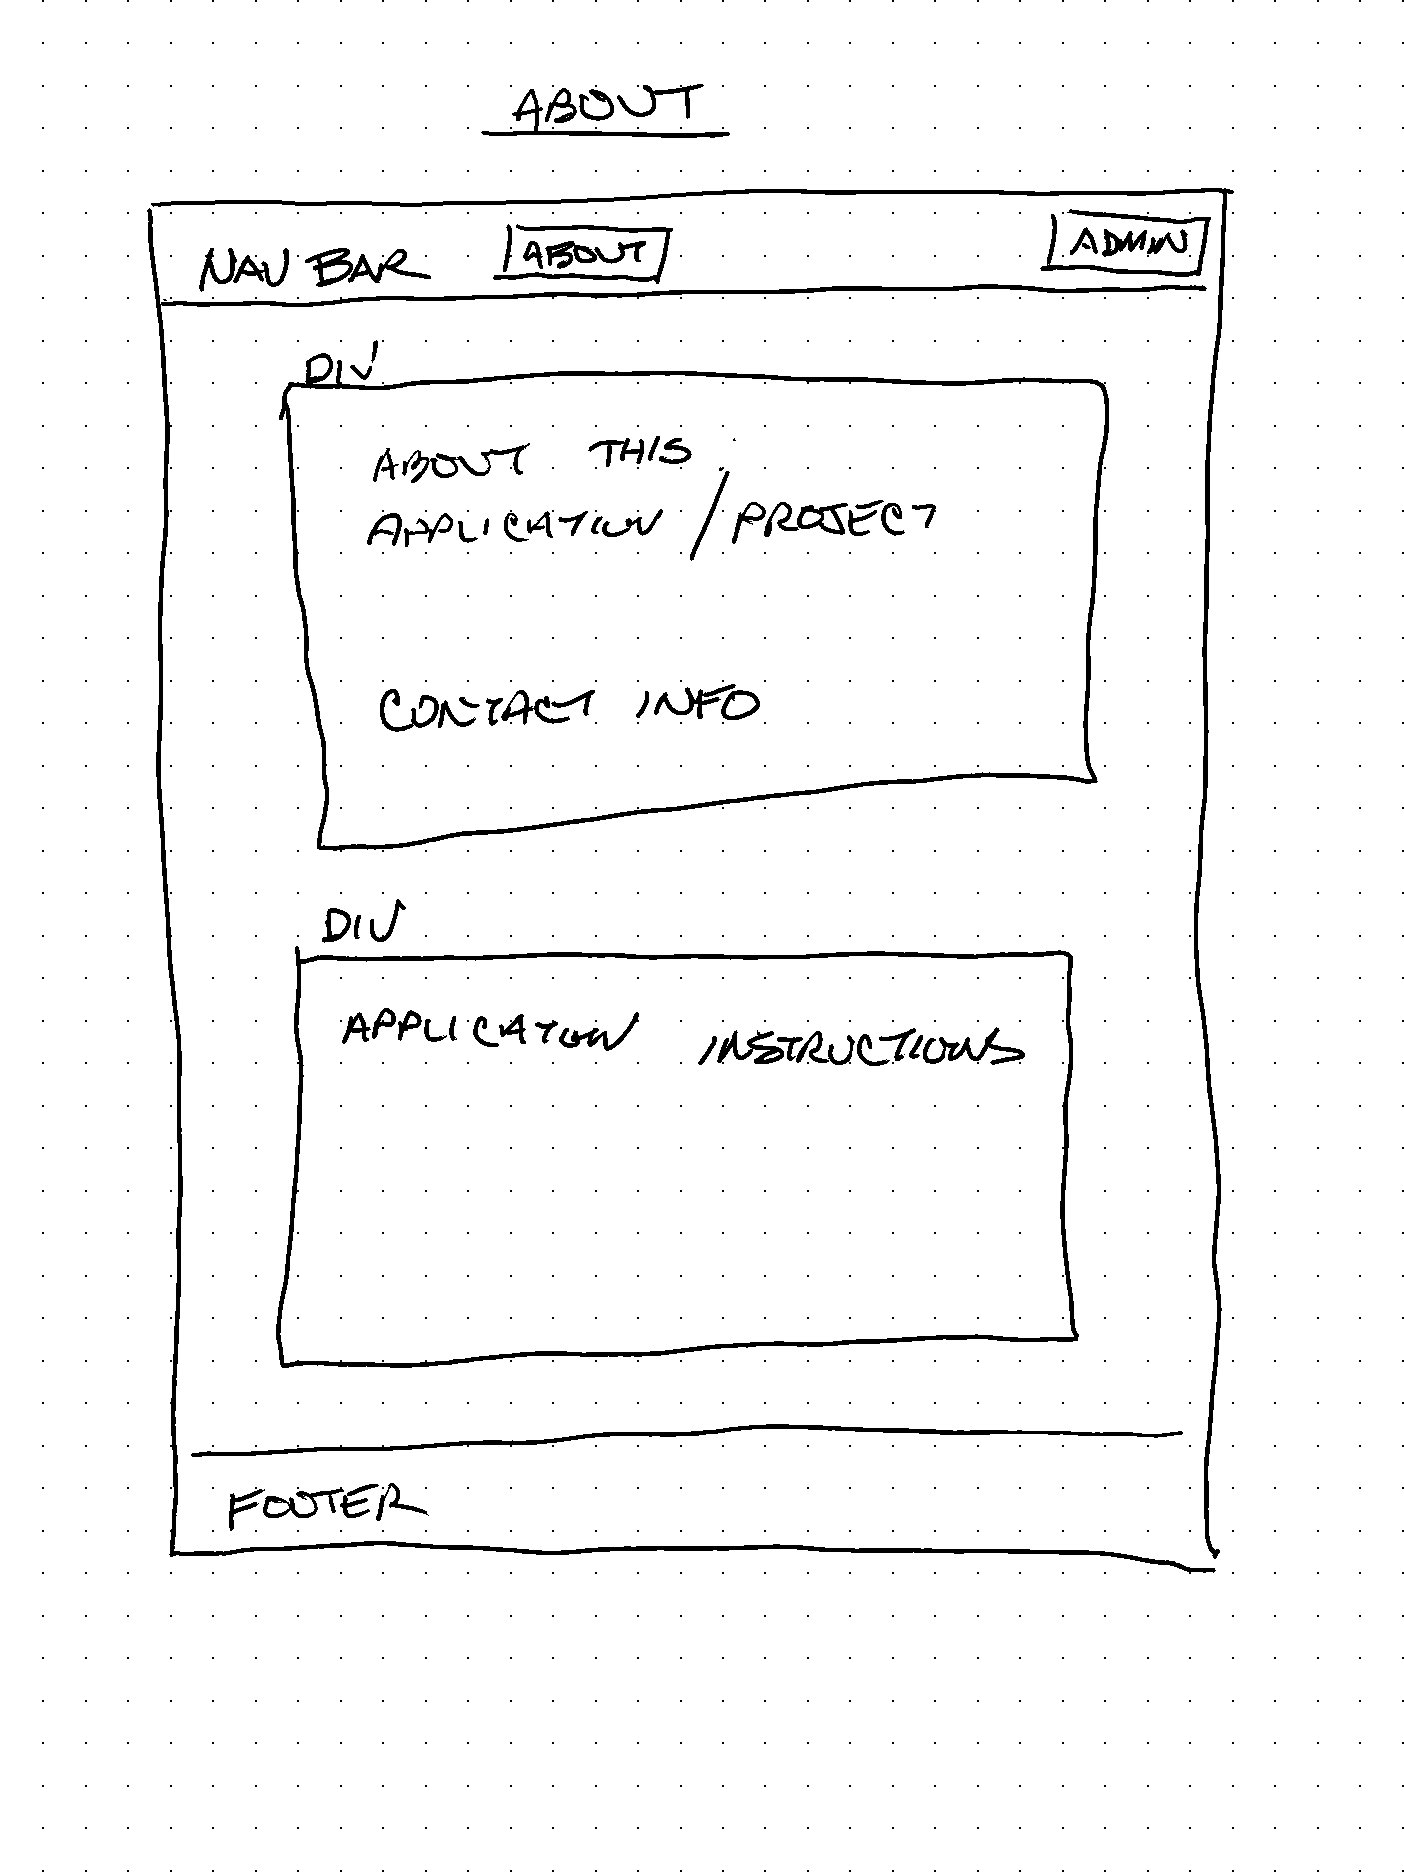 ABOUT
NAV BAR ABOUT ADMIN
DIV
ABOUT THIS
APPLICATION / PROJECT
CONTACT INFO
DIV
APPLICATION INSTRUCTIONS
FOOTER